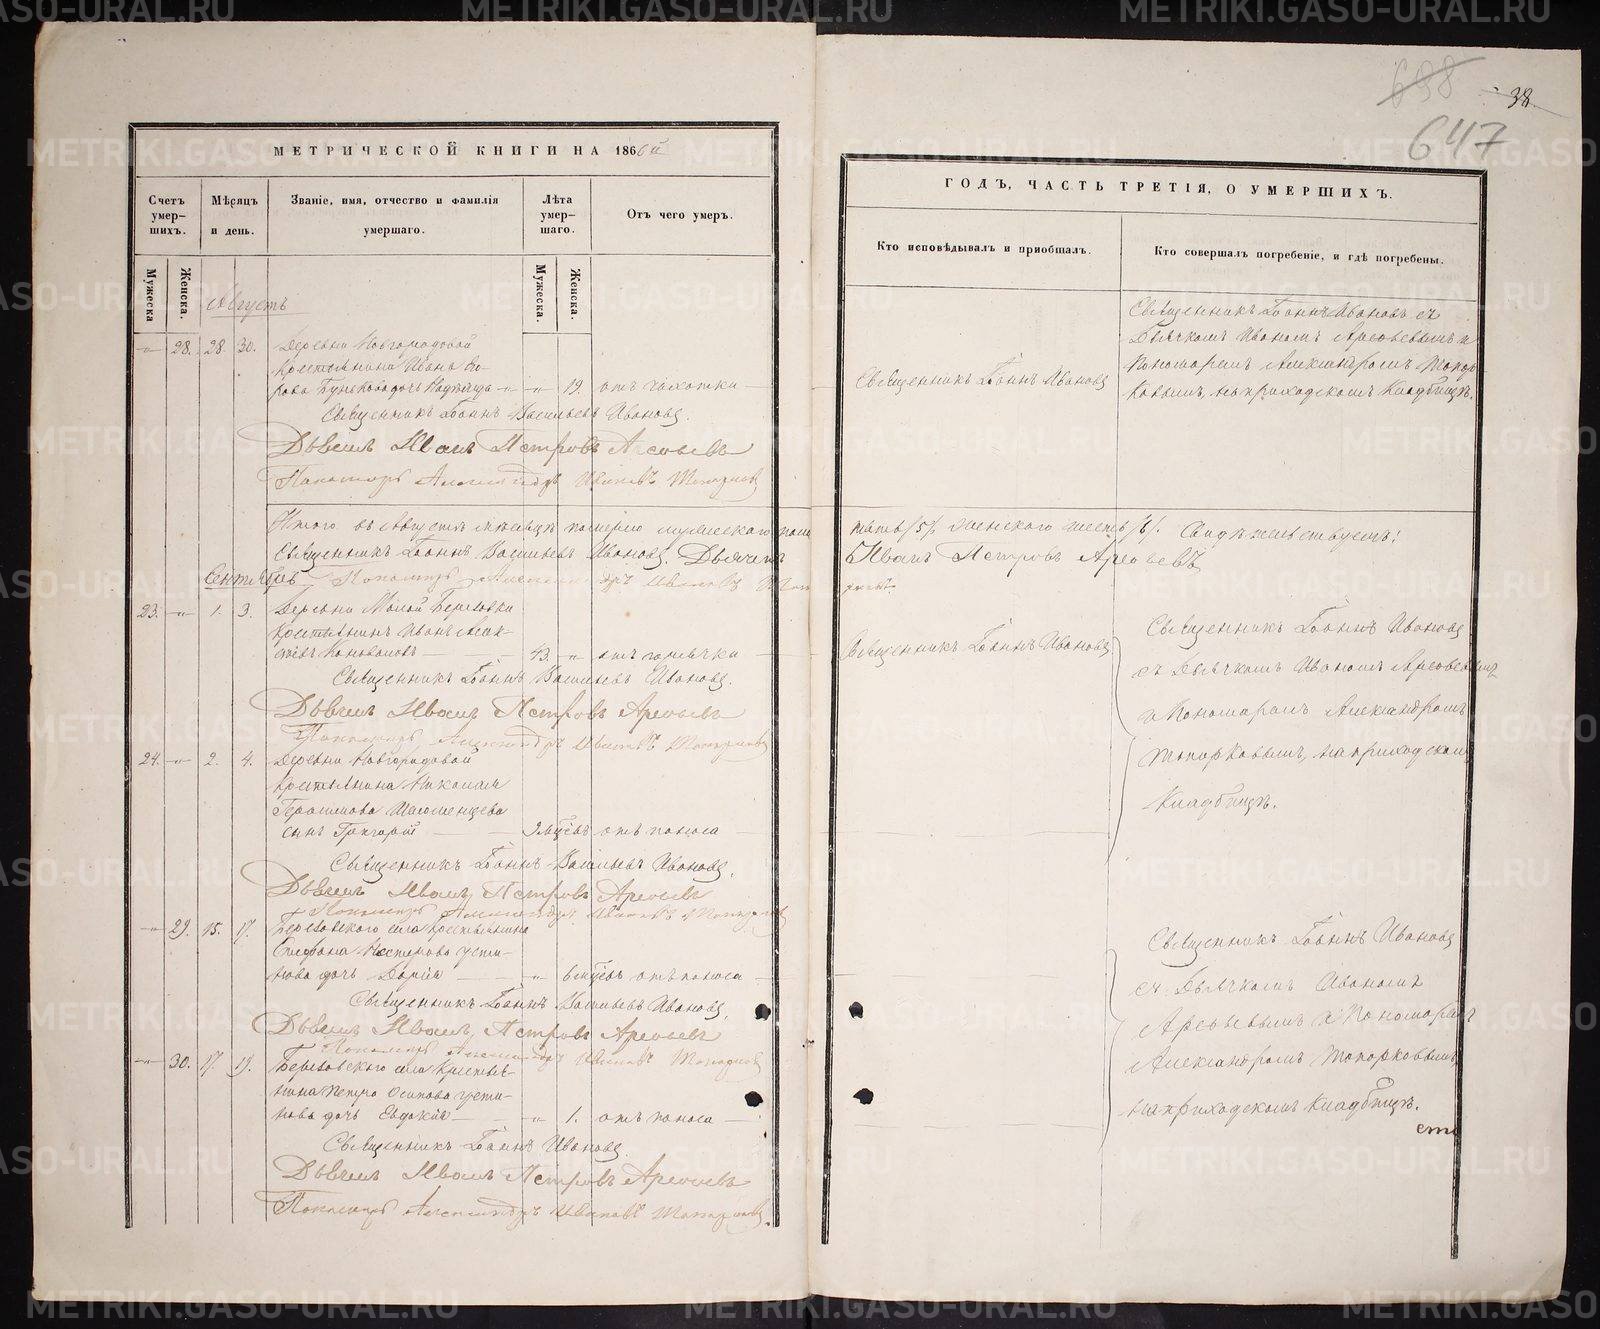 638
38.
647
МЕТРИЧЕСКОЙ КНИГИ НА 1866й
Счетъ умер- шихъ.
Мѣсяцъ и день.
Званіе, имя, отчество и фамилія умершаго.
Лѣта умер- шаго.
Отъ чего умеръ.
Мужеска
Женска.
Мужеска.
Женска.
Августъ
28. 28. 30. Деревни Новгородовой
крестьянина Ивана
дочь Надежда 19. отъ чахотки
Священникъ Іоаннъ Васильевъ Ивановъ.
Дьячекъ Иванъ Петровъ Арефьевъ
Пономарь Александръ Ивановъ Топорковъ
Итого въ Августѣ мѣсяцѣ померло мужеска пола
Священникъ Іоаннъ Васильевъ Ивановъ. Дьячекъ
Сентябрь Пономарь Александръ Ивановъ Топор
23. 1. 3. Деревни Малой Березовки
крестьянинъ Иванъ Алек-
сѣевъ Коноваловъ 43. отъ горячки
Священникъ Іоаннъ Васильевъ Ивановъ.
Дьячекъ Иванъ Петровъ Арефьевъ
Пономарь Александръ Ивановъ Топорковъ
24. 2. 4. Деревни Новгородовой
крестьянина Николая
Герасимова
сынъ Григорій мѣсяцъ отъ поноса
Священникъ Іоаннъ Васильевъ Ивановъ.
Дьячекъ Иванъ Петровъ Арефьевъ
Пономарь Александръ Ивановъ Топорковъ
29. 15. 17. Березовского села крестьянина
Стефана Нестерова Усти-
нова дочь Дарія 6 мѣсяцъ отъ поноса
Священникъ Іоаннъ Васильевъ Ивановъ.
Дьячекъ Иванъ Петровъ Арефьевъ
Пономарь Александръ Ивановъ Топорковъ
30. 17. 19. Березовского села крестья-
нина Петра Осипова Усти-
нова дочь Евдокія 1. отъ поноса
Священникъ Іоаннъ Ивановъ.
Дьячекъ Иванъ Петровъ Арефьевъ
Пономарь Александръ Ивановъ Топорковъ.
ГОДЪ, ЧАСТЬ ТРЕТІЯ, О УМЕРШИХЪ.
Кто исповѣдывалъ и пріобщалъ.
Кто совершалъ погребеніе, и гдѣ погребены.
Священникъ Іоаннъ Ивановъ
Священникъ Іоаннъ Ивановъ съ
Дьячкомъ Иваномъ Арефьевымъ и
Пономаремъ Александромъ Топор-
ковымъ, на приходскомъ кладбищѣ.
пять /5/. женского шесть /6/. Свидѣтельствуемъ:
Иванъ Петровъ Арефьевъ
ковъ.
Священникъ Іоаннъ Ивановъ
Священникъ Іоаннъ Ивановъ
съ Дьячкомъ Иваномъ Арефьевымъ
и Пономаремъ Александромъ
Топорковымъ, на приходскомъ
кладбищѣ.
Священникъ Іоаннъ Ивановъ
съ Дьячкомъ Иваномъ
Арефьевымъ и Пономаремъ
Александромъ Топорковымъ,
на приходскомъ кладбищѣ.
METRIKI.GASO-URAL.RU